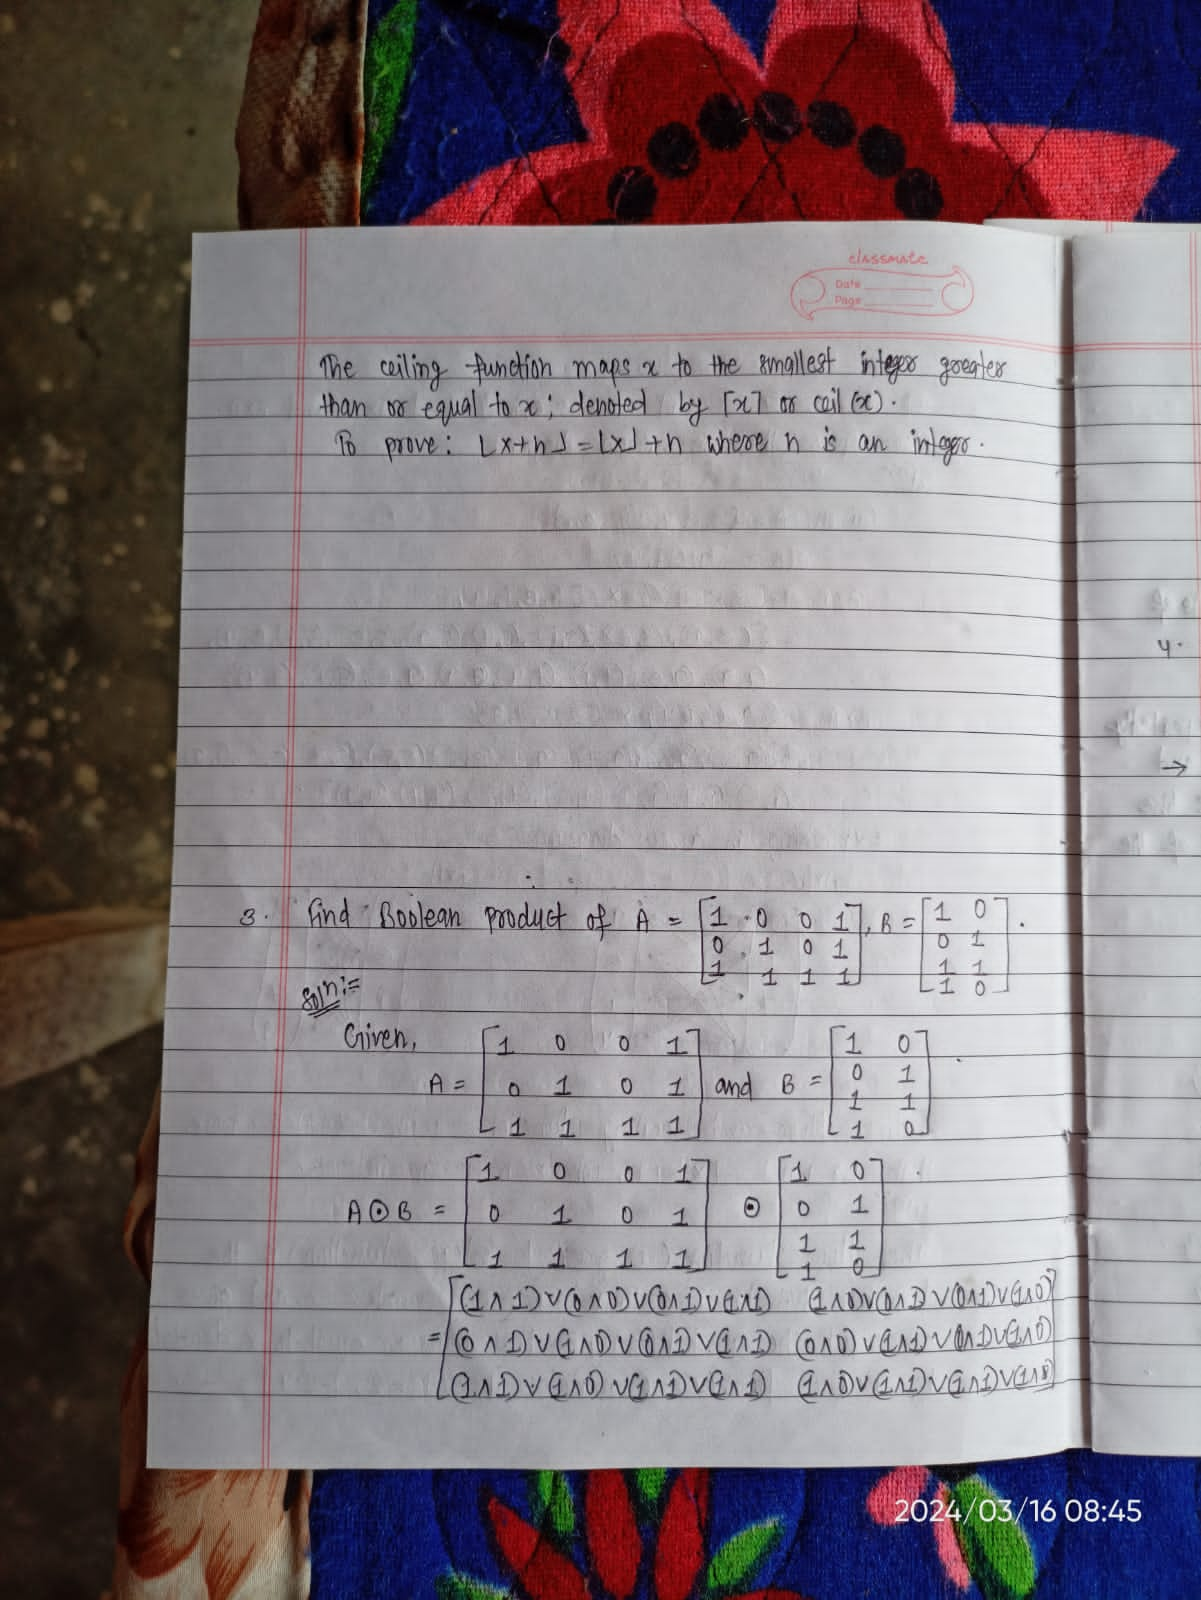 classmate
Date
Page
The ceiling function maps x to the smallest integer greater
than or equal to x; denoted by ⌈x⌉ or ceil (x).
To prove: ⌊x+n⌋ = ⌊x⌋+n where n is an integer.
3. Find Boolean product of A = [1 0 0 1], B = [1 0].
0 1 0 1 0 1
1 1 1 1 1 1
1 0
Soln:=
Given,
1 0 0 1 1 0
A = 0 1 0 1 and B = 0 1
1 1 1 1 1 1
1 0
1 0 0 1 1 0
A⊙B = 0 1 0 1 ⊙ 0 1
1 1 1 1 1 1
1 0
(1∧1)∨(0∧0)∨(0∧1)∨(1∧1) (1∧0)∨(0∧1)∨(0∧1)∨(1∧0)
= (0∧1)∨(1∧0)∨(0∧1)∨(1∧1) (0∧0)∨(1∧1)∨(0∧1)∨(1∧0)
(1∧1)∨(1∧0)∨(1∧1)∨(1∧1) (1∧0)∨(1∧1)∨(1∧1)∨(1∧0)
4.
→
2024/03/16 08:45